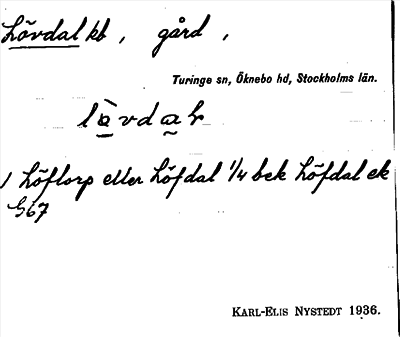 Lövdal kb, gård,
Turinge sn, Öknebo hd, Stockholms län.
Höftorp eller Höfdal 1/4 bek Höfdal ek
G67
KARL-ELIS NYSTEDT 1936.